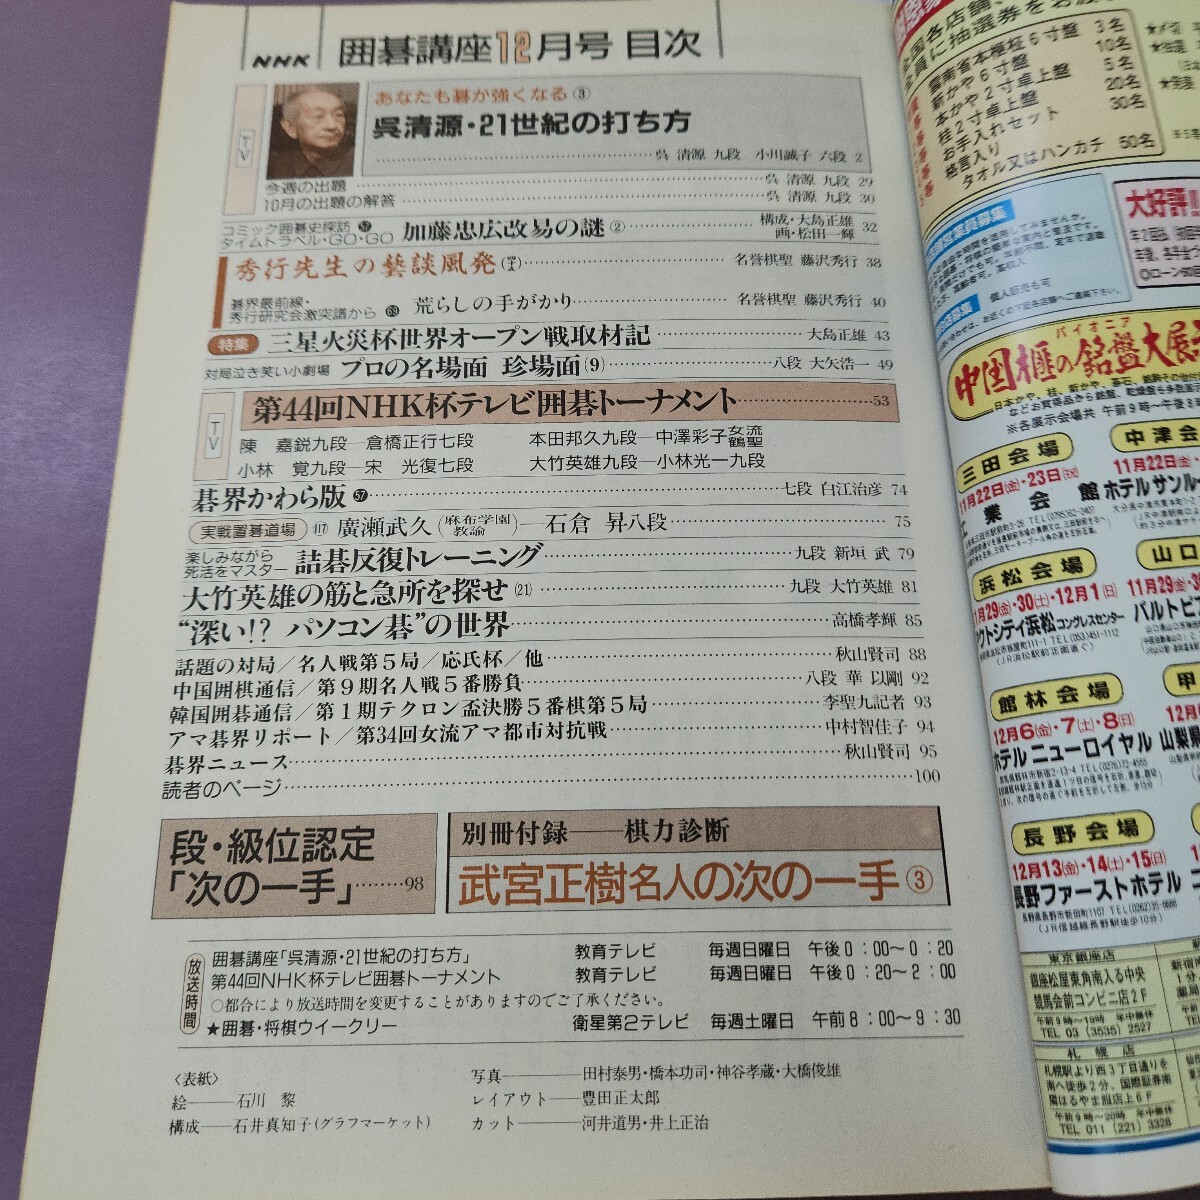 NHK 囲碁講座12月号 目次
TV
あなたも碁が強くなる③
呉清源・21世紀の打ち方
呉 清源 九段 小川誠子 六段 2
今週の出題 呉 清源 九段 29
10月の出題の解答 呉 清源 九段 30
コミック囲碁史探訪 57
タイムトラベル・GO・GO 加藤忠広改易の謎② 構成・大島正雄 画・松田一輝 32
秀行先生の藝談風発 名誉棋聖 藤沢秀行 38
碁界最前線・
秀行研究会激突譜から 69 荒らしの手がかり 名誉棋聖 藤沢秀行 40
特集 三星火災杯世界オープン戦取材記 大島正雄 43
対局泣き笑い小劇場 プロの名場面 珍場面(9) 八段 大矢浩一 49
TV
第44回NHK杯テレビ囲碁トーナメント 53
陳 嘉鋭九段―倉橋正行七段 本田邦久九段―中澤彩子女流鶴聖
小林 覚九段―宋 光復七段 大竹英雄九段―小林光一九段
碁界かわら版 57 七段 白江治彦 74
実戦置碁道場 117 廣瀬武久(麻布学園教諭)―石倉 昇八段 75
楽しみながら
死活をマスター 詰碁反復トレーニング 九段 新垣 武 79
大竹英雄の筋と急所を探せ(21) 九段 大竹英雄 81
“深い!? パソコン碁”の世界 高橋孝輝 85
話題の対局/名人戦第5局/応氏杯/他 秋山賢司 88
中国囲棋通信/第9期名人戦5番勝負 八段 華 以剛 92
韓国囲碁通信/第1期テクロン盃決勝5番棋第5局 李聖九記者 93
アマ碁界リポート/第34回女流アマ都市対抗戦 中村智佳子 94
碁界ニュース 秋山賢司 95
読者のページ 100
段・級位認定
「次の一手」 98
別冊付録――棋力診断
武宮正樹名人の次の一手③
放送時間
囲碁講座「呉清源・21世紀の打ち方」 教育テレビ 毎週日曜日 午後0:00〜0:20
第44回NHK杯テレビ囲碁トーナメント 教育テレビ 毎週日曜日 午後0:20〜2:00
○都合により放送時間を変更することがありますのでご了承ください。
★囲碁・将棋ウイークリー 衛星第2テレビ 毎週土曜日 午前8:00〜9:30
〈表紙〉
絵――石川 黎
構成――石井真知子(グラフマーケット)
写真――田村泰男・橋本功司・神谷孝蔵・大橋俊雄
レイアウト――豊田正太郎
カット――河井道男・井上正治
全国各店舗、
員に抽選券をお渡
雲南省本榧柾6寸盤 3名
新かや6寸盤 10名
本かや2寸卓上盤 5名
桂2寸卓上盤 20名
お手入れセット 30名
格言入り
タオル又はハンカチ 50名
大好評!!
個人販売も可
パイオニア
中国榧の銘盤大展
※各展示会場共 午前9時〜午後8
三田会場
11月22日(金)・23日(祝)
工業会館
中津会
11月22日(金)・
ホテルサンルー
浜松会場
11月29(金)・30(土)・12月1(日)
クトシティ浜松 コングレスセンター
TEL(053)451-1112
(JR浜松駅前正面直ぐ)
山口
11月29(金)・3
パルトピア
館林会場
12月6(金)・7(土)・8(日)
ホテルニューロイヤル
TEL(0276)72-4555
甲
12月6
山梨県
長野会場
12月13(金)・14(土)・15(日)
長野ファーストホテル
(JR信越線長野駅徒歩10分)
東京銀座店
銀座松屋東角南入る中央
競馬会前コンビニ店2F
午前9時〜19時 年中無休
TEL 03(3535)2527
札幌店
札幌駅より西3丁目通りを
南へ徒歩2分、国際証券南
隣はるやま服店上6F
午前9時〜20時 年中無休
TEL 011(221)3328